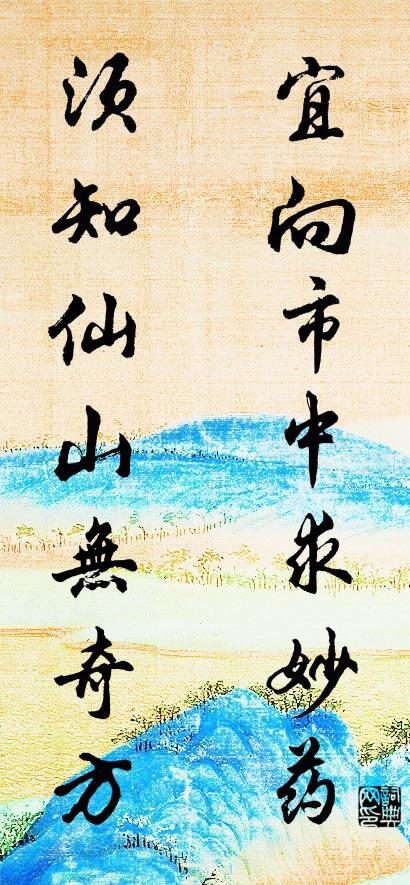 宜向市中求妙药
须知仙山無奇方